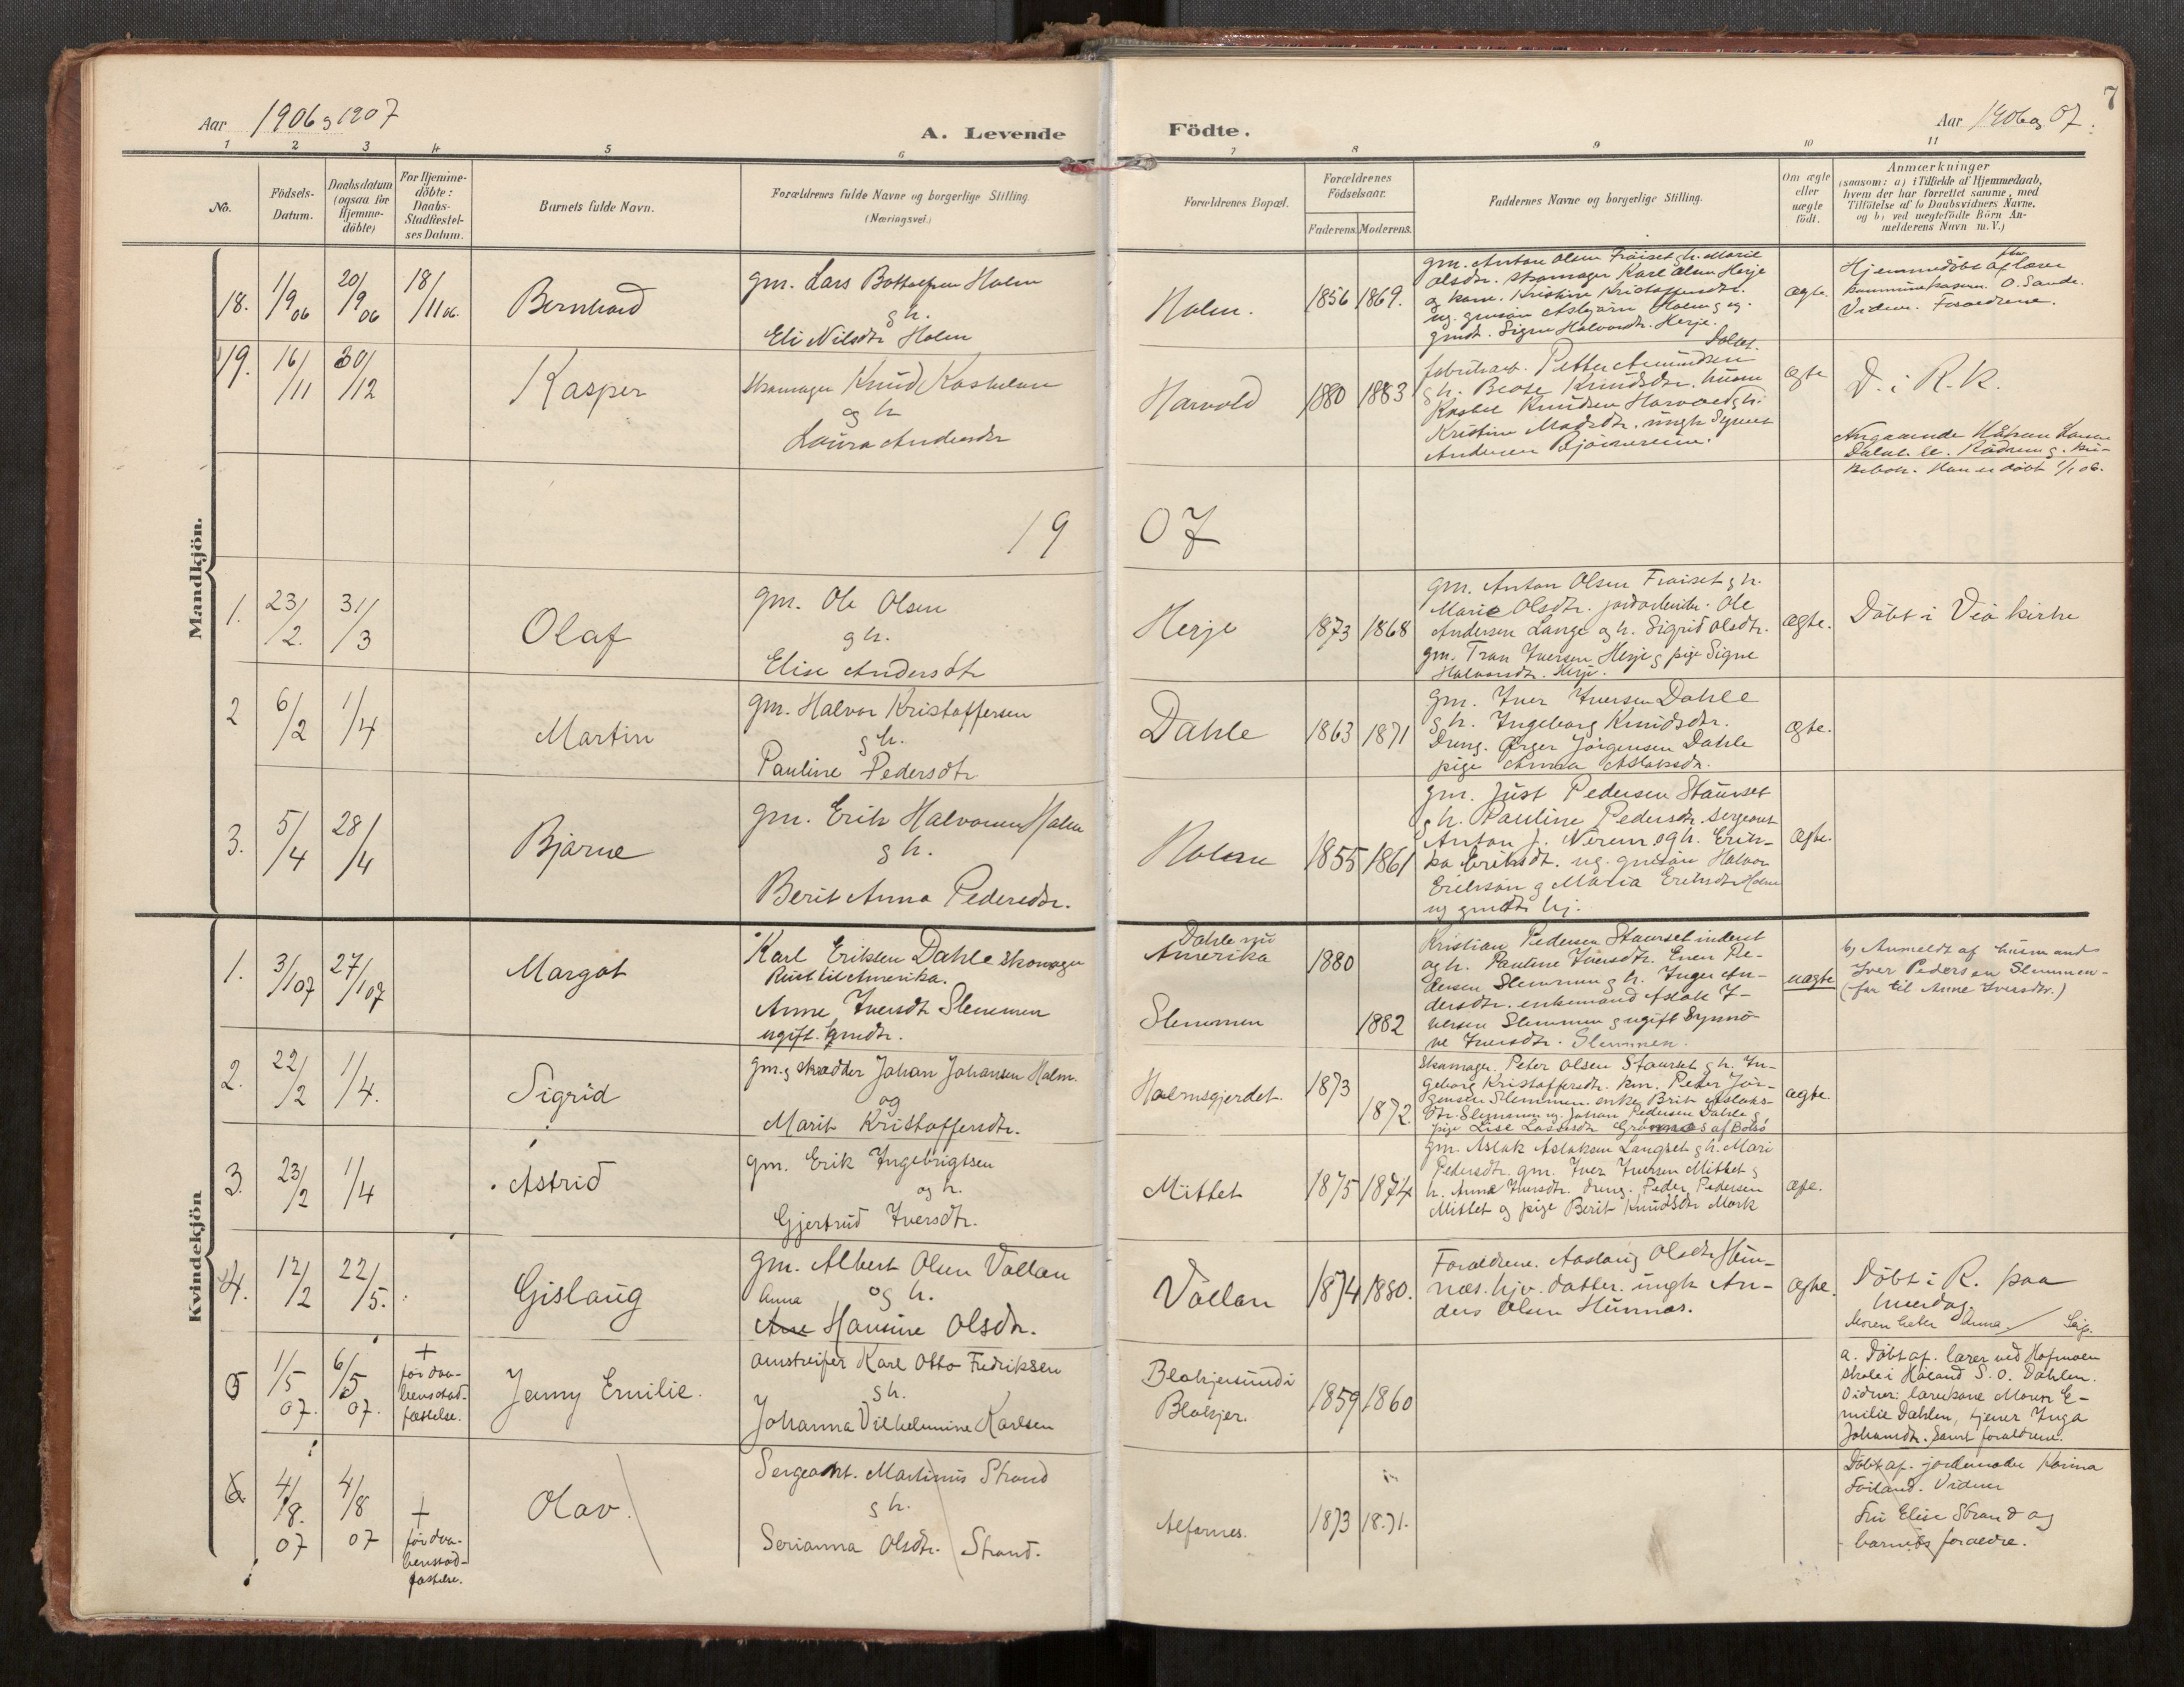 Aar 1906 og 1907
A. Levende
Födte.
Aar 1906 og 07.
7
1 2 3 4 5 6 7 8 9 10 11
No.
Födsels-
Datum.
Daabsdatum
(ogsaa for
Hjemme-
döbte)
For Hjemme-
döbte:
Daabs-
Stadfæstel-
ses Datum.
Barnets fulde Navn.
Forældrenes fulde Navne og borgerlige Stilling
(Næringsvei.)
Forældrenes Bopæl.
Forældrenes
Födselsaar.
Faderens. Moderens.
Faddernes Navne og borgerlige Stilling.
Om ægte
eller
uægte
födt.
Anmærkninger
(saasom: a) i Tilfælde af Hjemmedaab,
hvem der har forrettet samme, med
Tilföielse af to Daabsvidners Navne,
og b) ved uægtefödte Börn An-
melderens Navn m. V.)
Mandkjön.
18. 1/9 06 20/9 06 18/11 06. Bernhard
gm. Lars Bottolfsen Holm
g h.
Eli Nilsdtr Holm
Holm. 1856 1869.
gm. Anton Olsen Fraiset g h. Marie
Olsdtr. skomager Karl Olsen Herje
og kone. Kristine Kristoffersdtr.
ug. gmsøn Asbjørn Holm g ug.
gmdt. Signe Halvorsdtr. Herje.
ægte.
Hjemmedøbt af lærer
O. Sande.
Vidner. Forældrene.
19. 16/11 30/12 Kasper
skomager Knud Kastelsen
og h
Laura Andersdtr
Harvold 1880 1883
Petter Amundsen
g h. Beate Knudsdtr. husm
Kastel Knudsen Harvold g h.
Kristine Madsdtr. ungk Synnes
Andersen Bjørnereim.
ægte
D. i R. K.
Angaaende Håkon Hansen
Døbt 1/1 06.
19 07
1. 23/2. 31/3 Olaf
gm. Ole Olsen
g h.
Elise Andersdtr
Herje 1873 1868
gm. Anton Olsen Fraiset g h.
Marie Olsdtr. jordarbeider Ole
Andersen Lange og h. Sigrid Olsdtr.
gm. Tran Iversen Herje g pige Signe
Halvorsdtr. Herje.
ægte.
Döbt i Veö kirke
2 6/2 1/4 Martin
gm. Halvor Kristoffersen
g h.
Pauline Pedersdtr
Dahle 1863 1871
gm. Iver Iversen Dahle
g h. Ingeborg Knudsdtr.
dreng. Birger Jørgensen Dahle
pige Anna Aslaksdtr.
ægte.
3. 5/4 28/4 Bjarne
gm. Erik Halvorsen Holm
g h.
Berit Anna Pedersdtr.
Holm 1855 1861
gm. Just Pedersen Staurset
g h. Pauline Pedersdtr. sergeant
Anton J. Nerem og h. Erik-
ka Eriksdt. ug. gmsøn Halvor
Eriksøn g Maria Eriksdtr Holm
ug gmdt hj.
ægte.
Kvindekjön
1. 3/1 07 27/1 07 Margot
Karl Eriksen Dahle skomager
Reist til Amerika.
Anne Iversdtr Slemmen
ugift. gmdtr.
Dahle nu
Amerika
Slemmen
1880
1882
Kristian Pedersen Staurset inderst
og h. Pauline Iversdtr. Even Pe-
dersen Slemmen g h. Inger An-
dersdtr. enkemand Aslak I-
versen Slemmen g ugift Synnö-
ve Iversdtr. Slemmen.
uægte
b) Anmeldt af husmand
Iver Pedersen Slemmen-
(far til Anne Iversdtr.)
2. 22/2 1/4. Sigrid
gm. g skrædder Johan Johansen Holm.
og
Marit Kristoffersdtr.
Holmsgjerdet. 1873
1872.
Skomager. Peter Olsen Staurset g h. In-
geborg Kristoffersdtr. km. Peter Jör-
gensen Slemmen. enke Brit Aslaks-
dtr. Slemmen ug. Johan Pedersen Dahle g
pige Lise Larsdtr Grönnes af Bolsö
ægte.
3. 23/2 1/4 Astrid
gm. Erik Ingebrigtsen
og h.
Gjertrud Iversdtr.
Mittet 1875 1874
gm. Aslak Aslaksen Langset g h. Mari
Pedersdtr. gm. Iver Iversen Mittet g
h. Anne Iversdtr. dreng. Peder Pedersen
Mittet og pige Berit Knudsdtr Mork
ægte.
4. 12/2 22/5. Gislaug
gm. Albert Olsen Vollan
Anna og h.
Ane Hansine Olsdtr.
Vollan 1874 1880.
Forældrene. Aaslaug Olsdtr Hun-
næs. hjv. datter. ungk An-
ders Olsen Hunnæs.
ægte.
Döbt i R. paa
hverdag.
Moren heter Anna.
5 1/5 07. 6/5 07. + för daa-
bens stad-
fæstelse. Jenny Emilie.
omstreifer Karl Otto Fredriksen
g h.
Johanna Vilhelmine Karlsen
Blakjersund i
Blakjer. 1859 1860
a. Döbt af. lærer ved Hofmoen
skole i Høland S. O. Dahlen.
Vidner: lærerkone Maren E-
milie Dahlen, tjener Inga
Johansdtr. samt forældrene.
6. 4/8. 07 4/8 07 + för daa-
bens stad-
fæstelse. Olav.
Sergeant. Martinus Strand
g h.
Serianna Olsdtr. Strand.
Alfarnes. 1873 1871.
Döbt af. jordemoder Karina
Vidner
Fru Elise Strand og
barnets forældre.